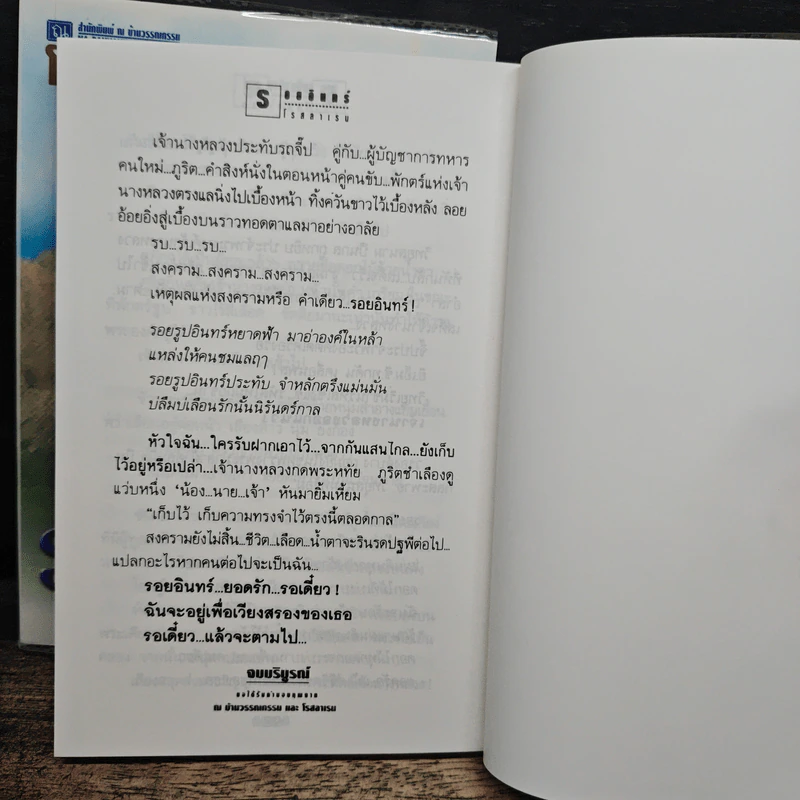 สำนักพิมพ์ ณ บ้านวรรณกรรม
รอยอินทร์
โรสลาเรน
เจ้านางหลวงประทับรถจี๊ป คู่กับ...ผู้บัญชาการทหาร
คนใหม่...ภูริต...คำสิงห์นั่งในตอนหน้าคู่คนขับ...พักตร์แห่งเจ้า
นางหลวงตรงแลนิ่งไปเบื้องหน้า ทิ้งควันขาวไว้เบื้องหลัง ลอย
อ้อยอิ่งสู่เบื้องบนราวทอดตาแลมาอย่างอาลัย
รบ...รบ...รบ...
สงคราม...สงคราม...สงคราม...
เหตุผลแห่งสงครามหรือ คำเดียว...รอยอินทร์!
รอยรูปอินทร์หยาดฟ้า มาอ่าองค์ในหล้า
แหล่งให้คนชมแลฤๅ
รอยรูปอินทร์ประทับ จำหลักตรึงแม่นมั่น
บ่ลืมบ่เลือนรักนั้นนิรันดร์กาล
หัวใจฉัน...ใครรับฝากเอาไว้...จากกันแสนไกล...ยังเก็บ
ไว้อยู่หรือเปล่า...เจ้านางหลวงกดพระหทัย ภูริตชำเลืองดู
แว่บหนึ่ง ‘น้อง...นาย...เจ้า’ หันมายิ้มเหี้ยม
“เก็บไว้ เก็บความทรงจำไว้ตรงนี้ตลอดกาล”
สงครามยังไม่สิ้น...ชีวิต...เลือด...น้ำตาจะรินรดปฐพีต่อไป...
แปลกอะไรหากคนต่อไปจะเป็นฉัน...
รอยอินทร์...ยอดรัก...รอเดี๋ยว!
ฉันจะอยู่เพื่อเวียงสรองของเธอ
รอเดี๋ยว...แล้วจะตามไป...
จบบริบูรณ์
ขอได้รับคำขอบคุณจาก
ณ บ้านวรรณกรรม และ โรสลาเรน